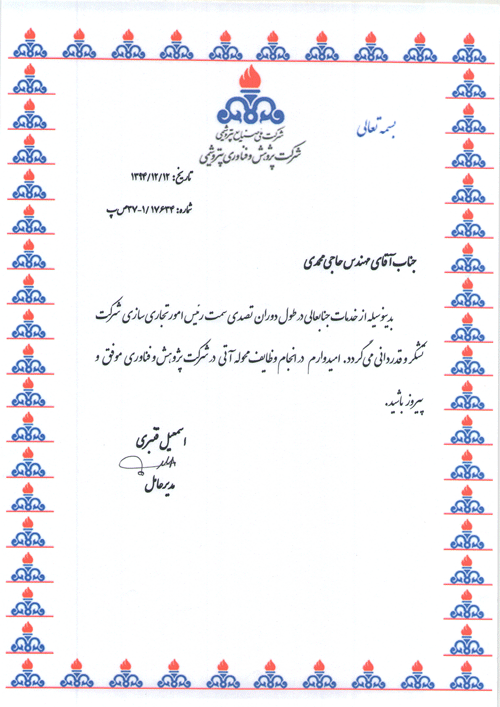 بسمه تعالی
شرکت ملی صنایع پتروشیمی
شرکت پژوهش و فناوری پتروشیمی
تاریخ: ۱۳۹۴/۱۲/۱۲
شماره: ۱۷۶۳۴/ ۱-۳۷ص پ
جناب آقای مهندس حاجی محمدی
بدینوسیله از خدمات جنابعالی در طول دوران تصدی سمت رئیس امور تجاری سازی شرکت
تشکر و قدردانی می گردد. امیدوارم در انجام وظایف محوله آتی در شرکت پژوهش و فناوری موفق و
پیروز باشید.
اسمعیل قنبری
مدیرعامل